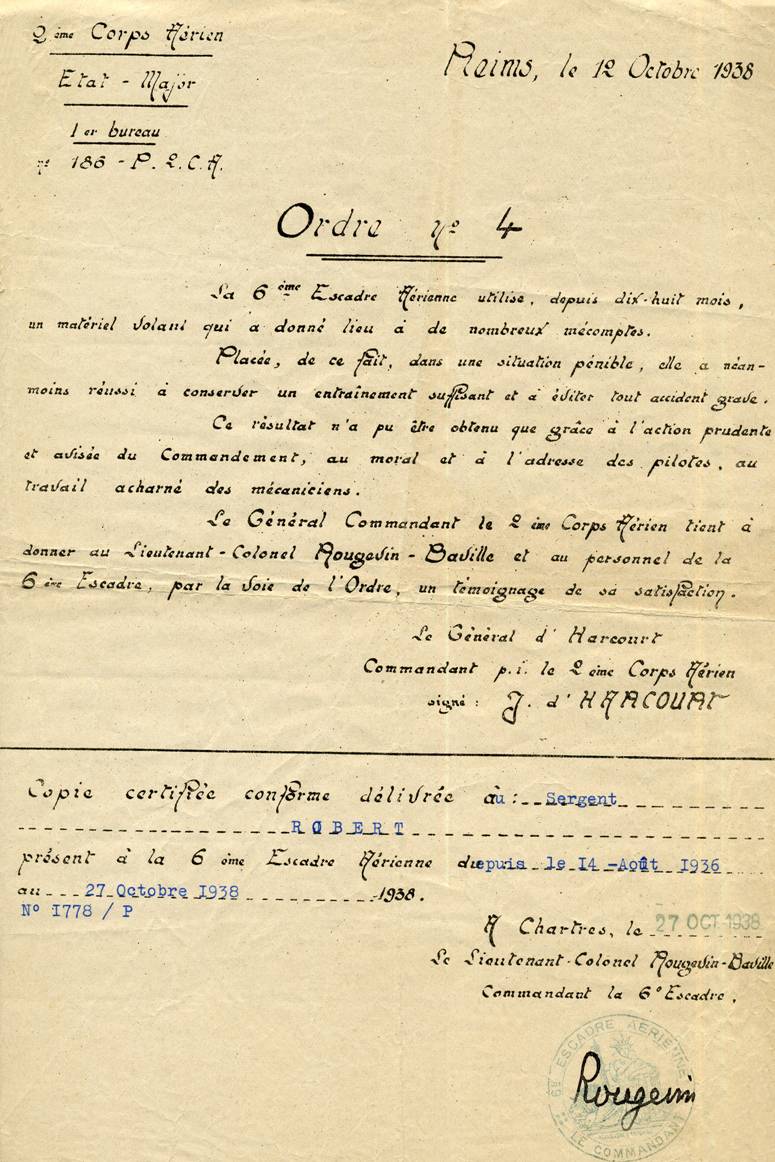 2 ème Corps Aérien
Etat - Major
1 er bureau
n° 186 - P. 2. C. A.
Reims, le 12 Octobre 1938
Ordre n° 4
La 6 ème Escadre Aérienne utilise, depuis dix-huit mois,
un matériel volant qui a donné lieu à de nombreux mécomptes.
Placée, de ce fait, dans une situation pénible, elle a néan-
moins réussi à conserver un entraînement suffisant et à éviter tout accident grave.
Ce résultat n'a pu être obtenu que grâce à l'action prudente
et avisée du Commandement, au moral et à l'adresse des pilotes, au
travail acharné des mécaniciens.
Le Général Commandant le 2 ème Corps Aérien tient à
donner au Lieutenant-Colonel Rougevin-Baville et au personnel de la
6 ème Escadre, par la voie de l'Ordre, un témoignage de sa satisfaction.
Le Général d'Harcourt
Commandant p.i. le 2 ème Corps Aérien
signé : J. d'HARCOURT
Copie certifiée conforme délivrée au : Sergent
ROBERT
présent à la 6 ème Escadre Aérienne depuis le 14 -Août 1936
au 27 Octobre 1938 1938.
N° 1778 / P
A Chartres, le 27 OCT 1938
Le Lieutenant-Colonel Rougevin-Baville
Commandant la 6° Escadre.
6e ESCADRE AERIENNE
LE COMMANDANT
Rougevin